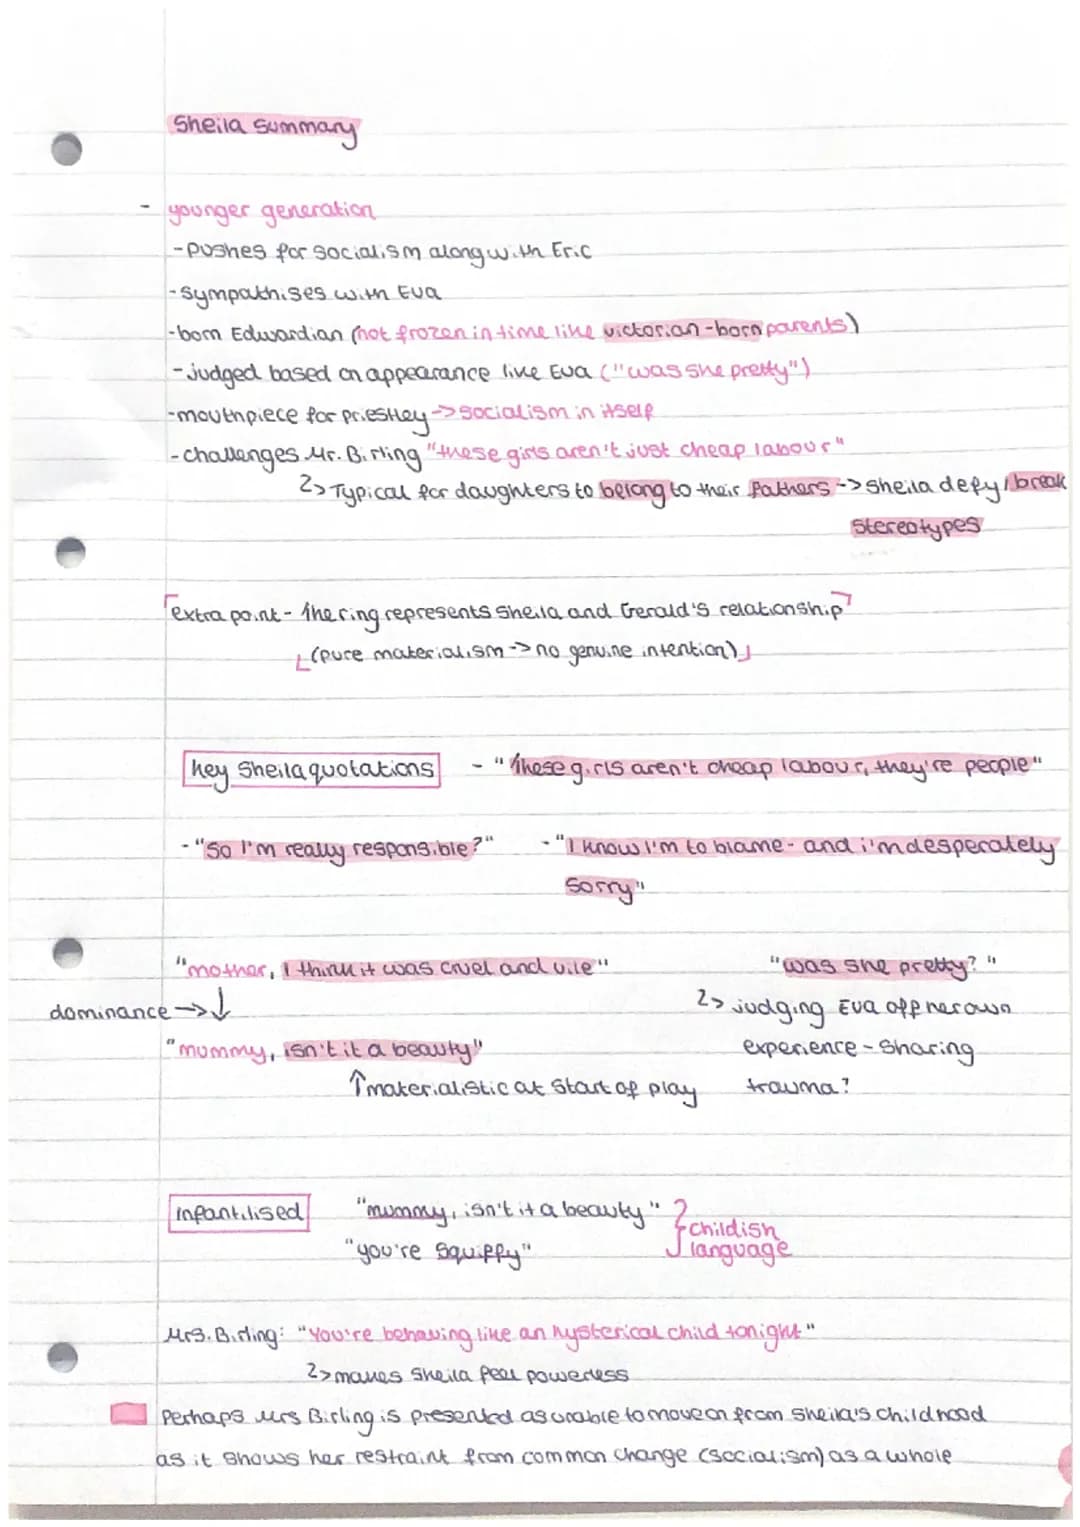 Sheila Summary
- younger generation
- pushes for socialism along with Eric
- sympathises with Eva
- born Edwardian (not frozen in time like victorian-born parents)
- judged based on appearance like Eva ("was she pretty")
- mouthpiece for Priestley -> socialism in itself
- challenges Mr. Birling "these girls aren't just cheap labour"
↳ Typical for daughters to belong to their fathers -> Sheila defy / break
stereotypes
extra point - The ring represents Sheila and Gerald's relationship
(pure materialism -> no genuine intention)
key Sheila quotations - "These girls aren't cheap labour, they're people"
- "So I'm really responsible?" - "I know I'm to blame - and i'm desperately
sorry"
"mother, I think it was cruel and vile" "was she pretty?"
dominance -> ↓ ↳ judging Eva off her own
"mummy, isn't it a beauty" experience - sharing
↑ materialistic at start of play trauma?
infantilised "mummy, isn't it a beauty" } childish
"you're squiffy" language
Mrs. Birling: "You're behaving like an hysterical child tonight"
↳ makes Sheila feel powerless
Perhaps Mrs Birling is presented as unable to move on from Sheila's childhood
as it shows her restraint from common change (socialism) as a whole